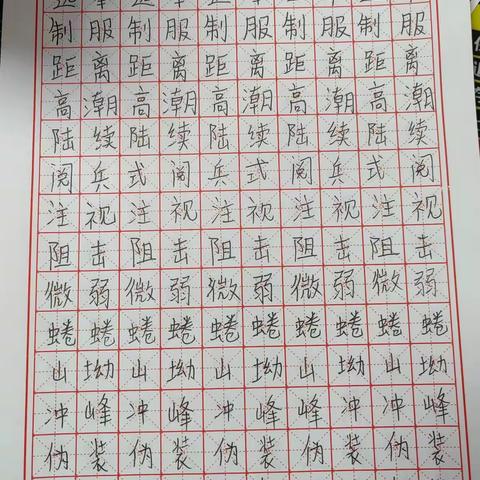 制服制服制服制服制服
距离距离距离距离距离
高潮高潮高潮高潮高潮
陆续陆续陆续陆续陆续
阅兵式阅兵式阅兵式阅
注视注视注视注视注视
阻击阻击阻击阻击阻击
微弱微弱微弱微弱微弱
蜷蜷蜷蜷蜷蜷蜷蜷蜷蜷
山坳山坳山坳山坳山坳
冲峰冲峰冲峰峰冲冲峰
伪装伪装伪装伪装伪装